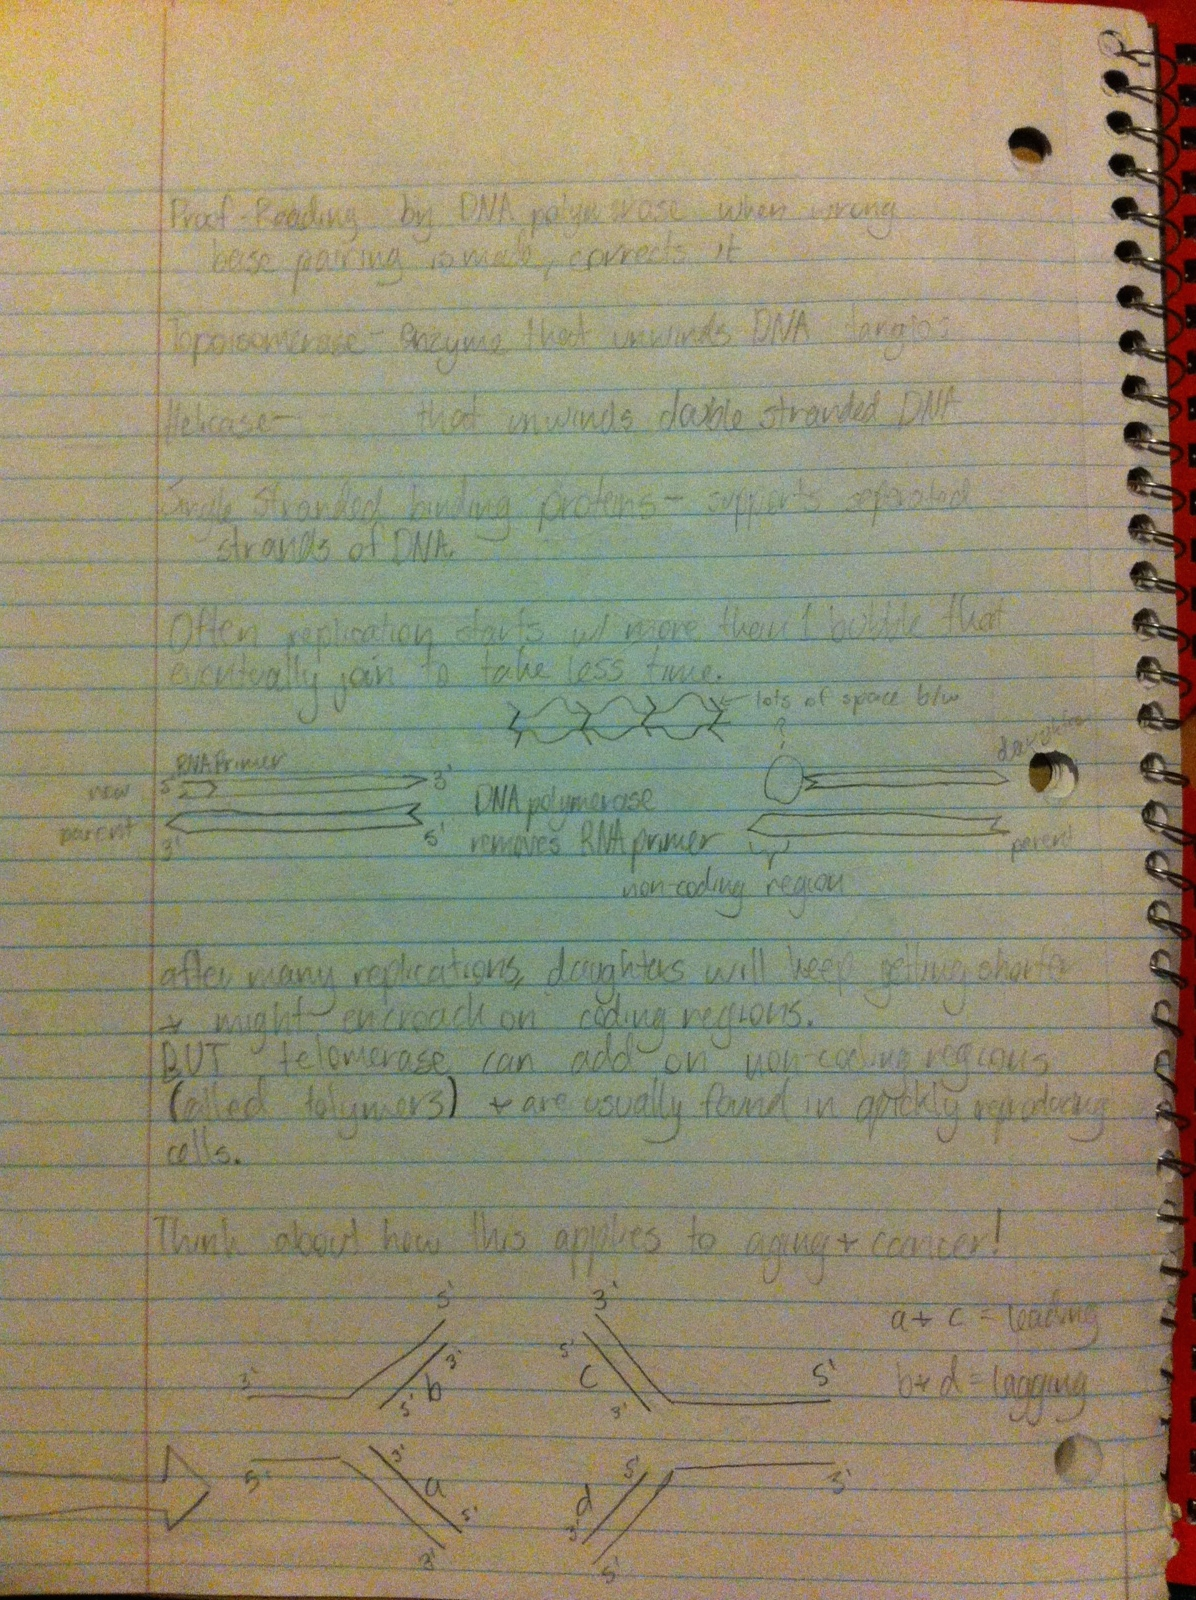 Proof-Reading by DNA polymerase when wrong
base pairing is made, corrects it
Topoisomerase - enzyme that unwinds DNA tangles
Helicase - that unwinds double stranded DNA
Single stranded binding proteins - supports separated
strands of DNA.
Often replication starts w/ more than 1 bubble that
eventually join to take less time.
← lots of space b/w
?
daughter
RNA Primer
new 5' 3'
parent 3' 5'
DNA polymerase
removes RNA primer
parent
non-coding region
after many replications, daughters will keep getting shorter
+ might encroach on coding regions.
BUT telomerase can add on non-coding regions
(called tolymers) + are usually found in quickly reproducing
cells.
Think about how this applies to aging + cancer!
5' 3'
a + c = leading
3' 3' b 5'
5' c 3' 5'
b + d = lagging
5' 3' a 5' 3'
5' d 3' 5' 3'